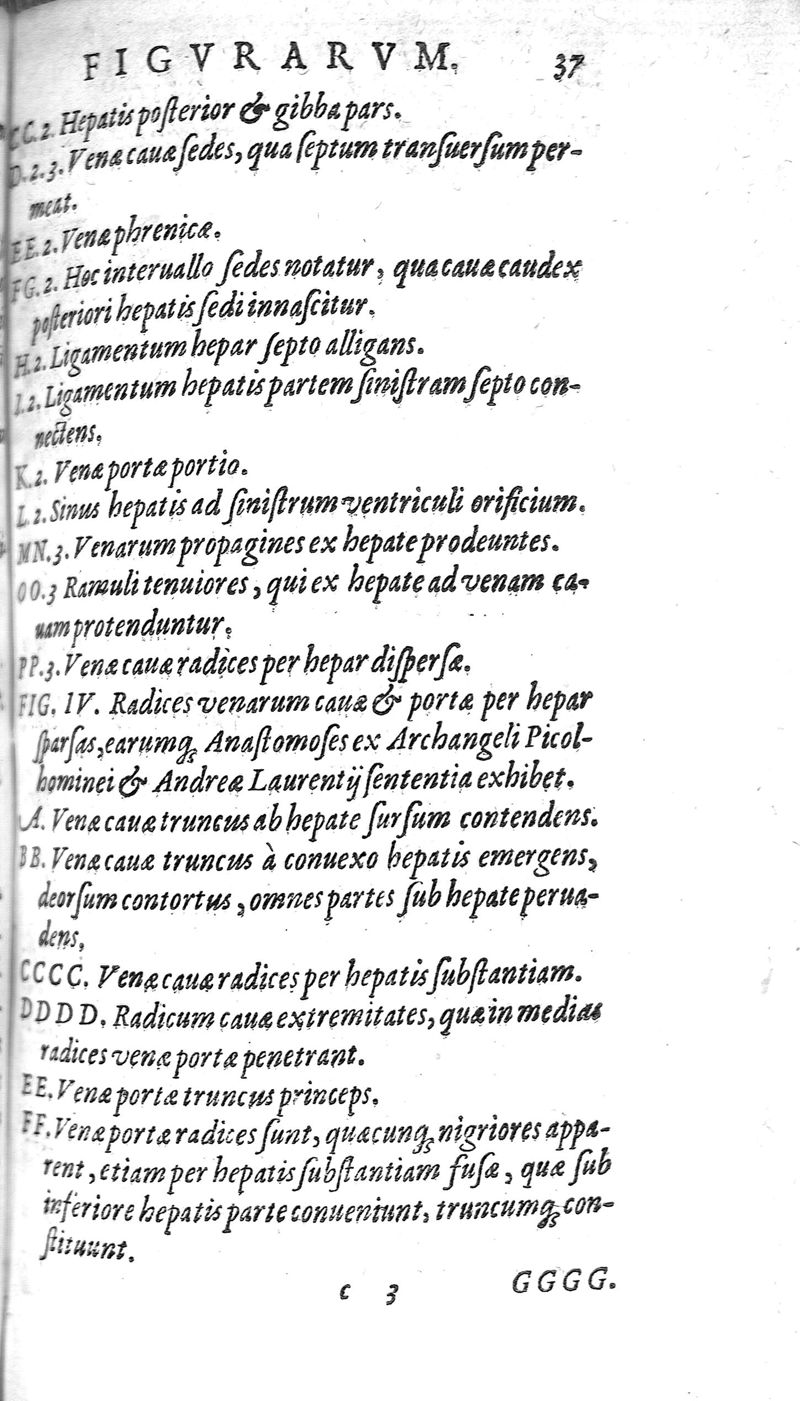 FIGVRARVM. 37
CC. 2. Hepatis poſterior & gibba pars.
D. 2. 3. Venæ cauæ ſedes, qua ſeptum tranſuerſum per-
meat.
EE. 2. Venæ phrenicæ.
FG. 2. Hoc interuallo ſedes notatur, qua cauæ caudex
poſteriori hepatis ſedi innaſcitur.
H. 2. Ligamentum hepar ſepto alligans.
I. 2. Ligamentum hepatis partem ſiniſtram ſepto con-
nectens.
K. 2. Venæ portæ portio.
L. 2. Sinus hepatis ad ſiniſtrum ventriculi orificium.
MN. 3. Venarum propagines ex hepate prodeuntes.
OO. 3 Ramuli tenuiores, qui ex hepate ad venam ca-
uam protenduntur.
PP. 3. Venæ cauæ radices per hepar diſperſæ.
FIG. IV. Radices venarum cauæ & portæ per hepar
ſparſas, earumq́ꝫ Anaſtomoſes ex Archangeli Picol-
hominei & Andreæ Laurentij ſententia exhibet.
A. Venæ cauæ truncus ab hepate ſurſum contendens.
BB. Venæ cauæ truncus à conuexo hepatis emergens,
deorſum contortus, omnes partes ſub hepate perua-
dens,
CCCC. Venæ cauæ radices per hepatis ſubſtantiam.
DDDD. Radicum cauæ extremitates, quæ in medias
radices venæ portæ penetrant.
EE. Venæ portæ truncus princeps.
FF. Venæ portæ radices ſunt, quæcunq́ꝫ nigriores appa-
rent, etiam per hepatis ſubſtantiam fuſæ, quæ ſub
inferiore hepatis parte conueniunt, truncumq́ꝫ con-
ſtituunt.
c 3 GGGG.